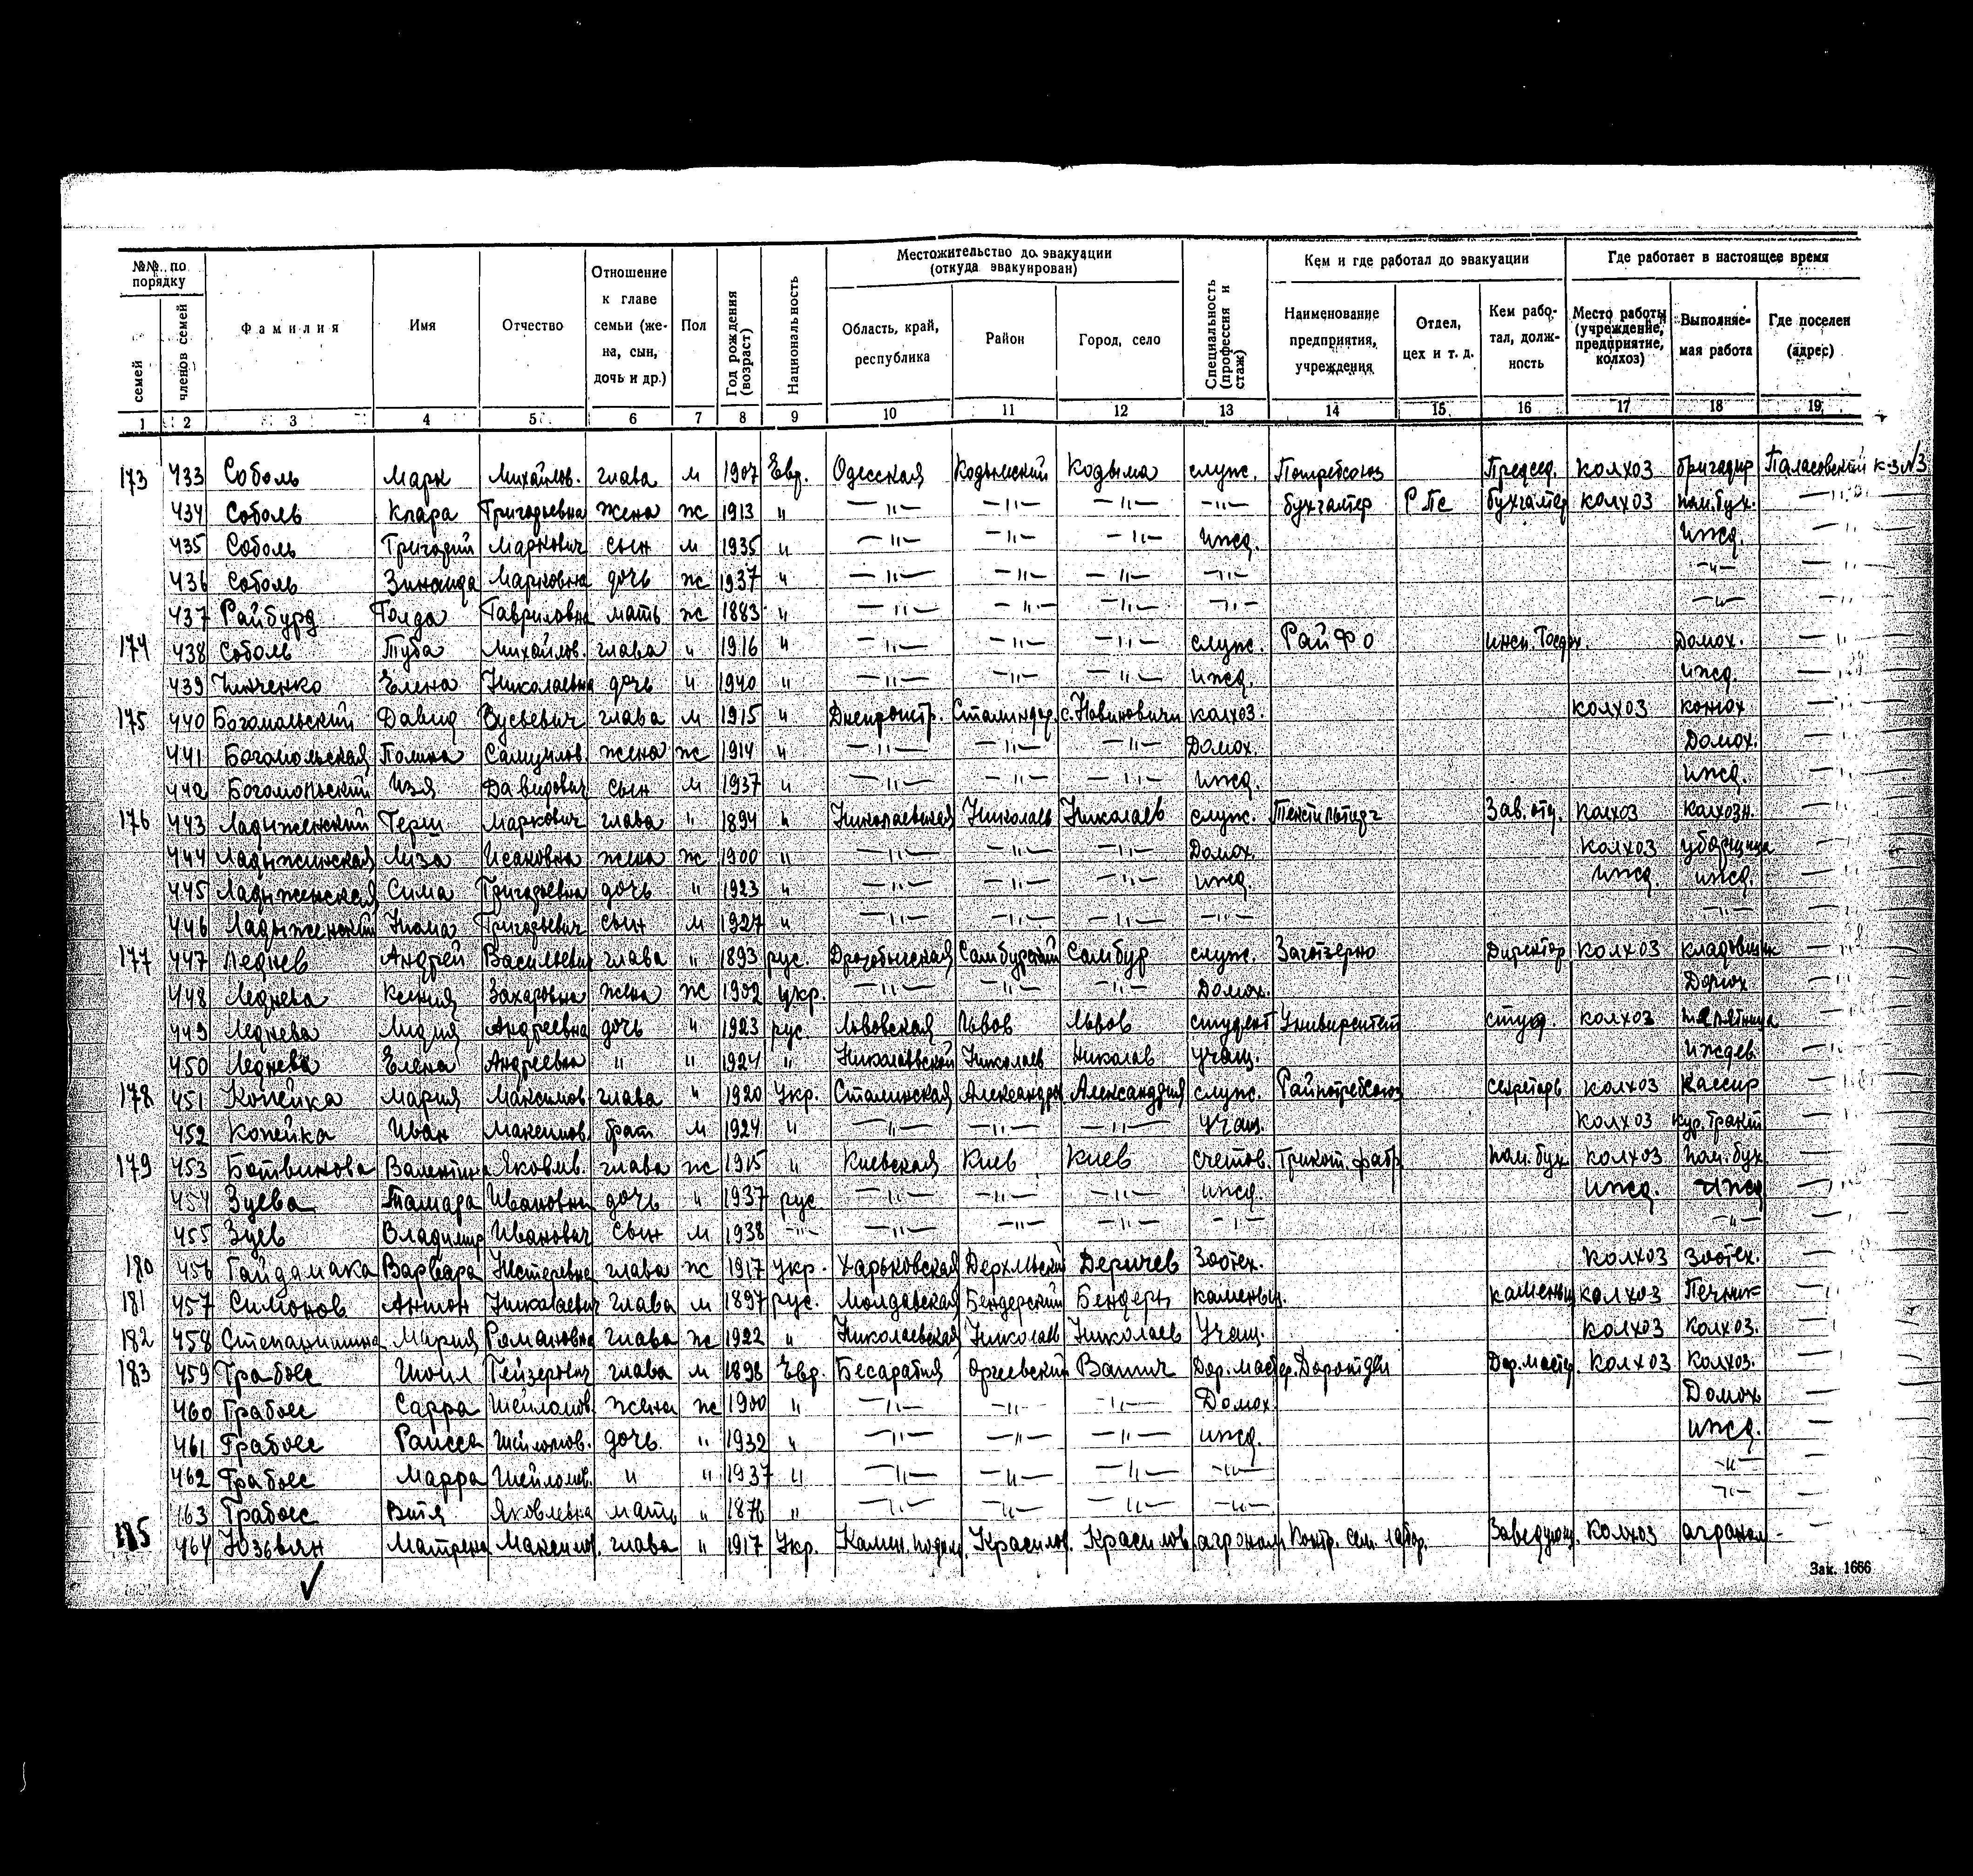 №№ по порядку
семей
членов семей
Фамилия
Имя
Отчество
Отношение к главе семьи (жена, сын, дочь и др.)
Пол
Год рождения (возраст)
Национальность
Местожительство до эвакуации (откуда эвакуирован)
Область, край, республика
Район
Город, село
Специальность (профессия и стаж)
Кем и где работал до эвакуации
Наименование предприятия, учреждения
Отдел, цех и т. д.
Кем работал, должность
Где работает в настоящее время
Место работы (учреждение, предприятие, колхоз)
Выполняемая работа
Где поселен (адрес)
1 2 3 4 5 6 7 8 9 10 11 12 13 14 15 16 17 18 19
173 433 Соболь Марк Михайлов. глава м 1907 Евр. Одесская Кодымский Кодыма служ. Потребсоюз Председ. колхоз бригадир Паласовский к-з №3
434 Соболь Клара Григорьевна жена ж 1913 " —"— —"— —"— —"— бухгалтер бухгалтер колхоз пом. бух. —"—
435 Соболь Григорий Маркович сын м 1935 " —"— —"— —"— ижд. ижд. —"
436 Соболь Зинаида Марковна дочь ж 1937 " —"— —"— —"— —"— —"— —"
437 Райбурд Голда Гавриловна мать ж 1883 " —"— —"— —"— —"— —"— —"
174 438 Соболь Туба Михайлов. глава " 1916 " —"— —"— —"— служ. РайФо инсп. Госдох. Домох. —"
439 Чинченко Елена Николаевна дочь " 1940 " —"— —"— —"— ижд. ижд. —"
175 440 Богомольский Давид Вусьевич глава м 1915 " Днепропетр. Сталиндор. колхоз. колхоз конюх —"
441 Богомольская Полина Самуилов. жена ж 1914 " —"— —"— —"— Домох. Домох. —"
442 Богомольский Изя Давидович сын м 1937 " —"— —"— —"— ижд. ижд. —"
176 443 Ладыженский Герш Маркович глава " 1894 " Николаевская Николаев Николаев служ. Зав. отд. колхоз колхозн. —"
444 Ладыжинская Лиза Исаковна жена ж 1900 " —"— —"— —"— Домох. колхоз уборщица —"
445 Ладыженская Сима Григорьевна дочь " 1923 " —"— —"— —"— ижд. ижд. ижд. —"
446 Ладыженский Нюма Григорьевич сын м 1927 " —"— —"— —"— —"— —"— —"
177 447 Леднев Андрей Васильевич глава " 1893 рус. Дрогобычская Самбурский Самбур служ. Заготзерно Директор колхоз кладовщик —"
448 Леднева Ксения Захаровна жена ж 1902 укр. —"— —"— —"— Домох. Домох —"
449 Леднева Лидия Андреевна дочь " 1923 рус. Львовская Львов Львов студент Университет студ. колхоз —"
450 Леднева Елена Андреевна " " 1924 " Николаевской Николаев Николаев учащ. иждев —"
178 451 Копейка Мария Максимов. глава " 1920 Укр. Сталинская Александров Александрия служ. Райпотребсоюз секретарь колхоз Кассир —"
452 Копейка Иван Максимов. брат м 1924 " —"— —"— —"— Учащ. колхоз кур. тракт —"
179 453 Ботвинова Валентина Яковлв. глава ж 1915 " Киевская Киев Киев счетов. Трикот. фабр. пом. бух. колхоз пом. бух —"
454 Зуева Тамара Ивановна дочь " 1937 рус —"— —"— —"— ижд. ижд. ижд —"
455 Зуев Владимир Иванович сын м 1938 —"— —"— —"— —"— —"— —"— —
180 456 Гайдамака Варвара Нестеревна глава ж 1917 укр. Харьковская Деричев Зоотех. колхоз Зоотех. —
181 457 Симонов Антон Николаевич глава м 1897 рус. Молдавская Бендерский Бендеры каменьщ. каменьщ колхоз Печник —
182 458 Степанишина Мария Романовна глава ж 1922 " Николаевская Николаев Николаев Учащ. колхоз колхоз. —
183 459 Грабоес Шоил Гейзерович глава м 1898 Евр. Бесарабия Оргеевский Дор. мастер. Доротдел Дор. мастер. колхоз Колхоз. —
460 Грабоес Сарра Шейломов. жена ж 1900 " —"— —"— —"— Домох Домох —
461 Грабоес Раисса Шейломов. дочь " 1932 " —"— —"— —"— ижд. ижд. —
462 Грабоес Марра Шейломов. " " 1937 " —"— —"— —"— —"— —"— —
463 Грабоес Витя Яковлевна мать " 1876 " —"— —"— —"— —"— —"— —
185 464 Юзьвян Матрена Максимов. глава " 1917 Укр. Камен. подол. Красилов. Красилов агроном Контр. сем. лабор. Заведующ. Колхоз агроном —
Зак. 1666